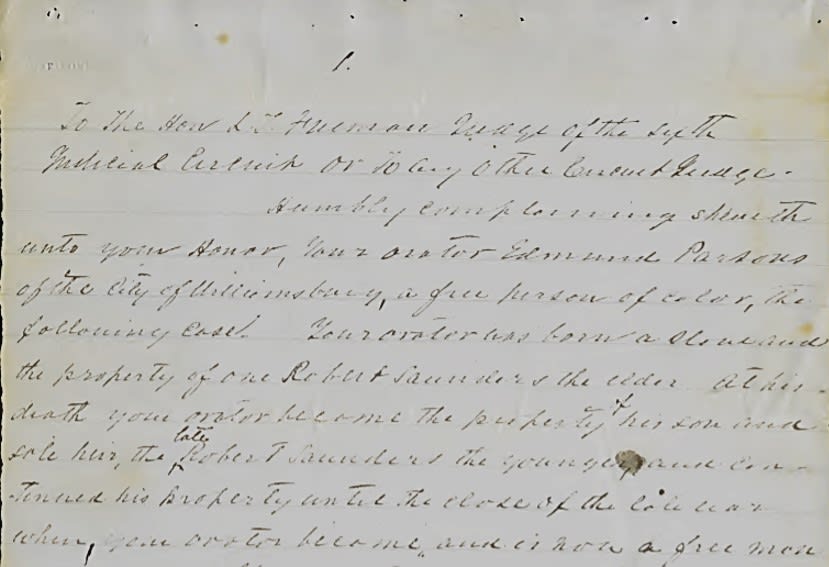 1.
To the Hon L. T. Freeman Judge of the sixth
Judicial Circuit or to any other Circuit Judge.
Humbly complaining sheweth
unto your Honor, Your orator Edmund Parsons
of the City of Williamsburg, a free person of color, the
following case. Your orator was born a slave and
the property of one Robert Saunders the elder At his
death your orator become the property of his son and
sole heir, the late Robert Saunders the younger, and con-
tinued his property until the close of the late war
when, your orator become, and is now a free man